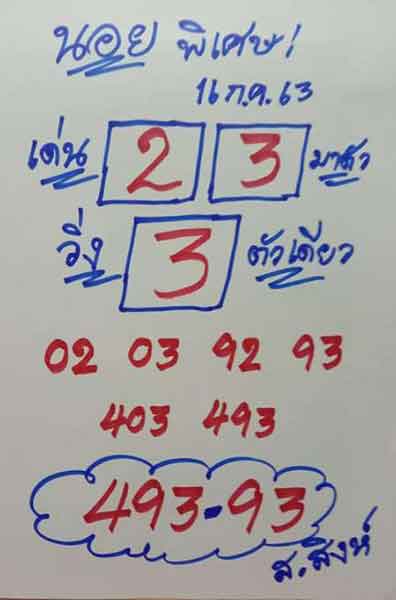 นอย พิเศษ!
16 ก.ค. 63
เด่น 2 3 มาตัว
วิ่ง 3 ตัวเดียว
02 03 92 93
403 493
493-93
ส.สิงห์